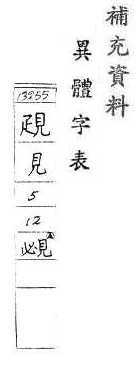 補充資料
異體字表
13255
見
5
12
覕